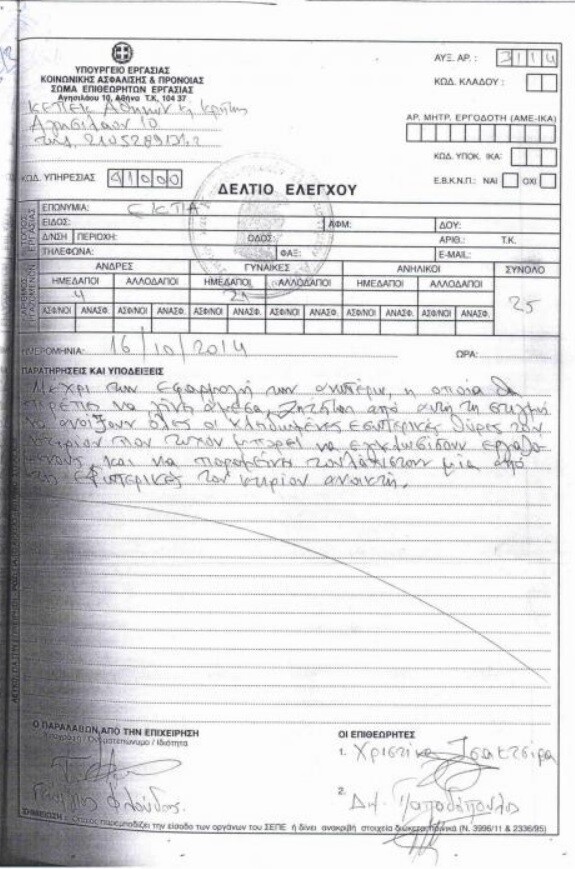 ΥΠΟΥΡΓΕΙΟ ΕΡΓΑΣΙΑΣ
ΚΟΙΝΩΝΙΚΗΣ ΑΣΦΑΛΙΣΗΣ & ΠΡΟΝΟΙΑΣ
ΣΩΜΑ ΕΠΙΘΕΩΡΗΤΩΝ ΕΡΓΑΣΙΑΣ
Αγησιλάου 10, Αθήνα Τ.Κ. 104 37
ΚΕΠΕΚ Αθηνών κ Κρήτης
Αγησιλάου 10
ΑΥΞ. ΑΡ. : 3114
ΚΩΔ. ΚΛΑΔΟΥ :
ΑΡ. ΜΗΤΡ. ΕΡΓΟΔΟΤΗ (ΑΜΕ-ΙΚΑ)
ΚΩΔ. ΥΠΟΚ. ΙΚΑ:
ΚΩΔ. ΥΠΗΡΕΣΙΑΣ 91000
Ε.Β.Κ.Ν.Π.: ΝΑΙ ΟΧΙ
ΔΕΛΤΙΟ ΕΛΕΓΧΟΥ
ΕΠΩΝΥΜΙΑ: ΕΚΠΑ
ΕΙΔΟΣ: ΑΦΜ: ΔΟΥ:
Δ/ΝΣΗ ΠΕΡΙΟΧΗ: ΟΔΟΣ: ΑΡΙΘ.: Τ.Κ.
ΤΗΛΕΦΩΝΑ: ΦΑΞ: E-MAIL:
ΑΝΔΡΕΣ ΓΥΝΑΙΚΕΣ ΑΝΗΛΙΚΟΙ ΣΥΝΟΛΟ
ΗΜΕΔΑΠΟΙ ΑΛΛΟΔΑΠΟΙ ΗΜΕΔΑΠΟΙ ΑΛΛΟΔΑΠΟΙ ΗΜΕΔΑΠΟΙ ΑΛΛΟΔΑΠΟΙ
4 21 25
ΑΣΦ/ΝΟΙ ΑΝΑΣΦ. ΑΣΦ/ΝΟΙ ΑΝΑΣΦ. ΑΣΦ/ΝΟΙ ΑΝΑΣΦ. ΑΣΦ/ΝΟΙ ΑΝΑΣΦ. ΑΣΦ/ΝΟΙ ΑΝΑΣΦ. ΑΣΦ/ΝΟΙ ΑΝΑΣΦ.
ΗΜΕΡΟΜΗΝΙΑ: 16/10/2014 ΩΡΑ:
ΠΑΡΑΤΗΡΗΣΕΙΣ ΚΑΙ ΥΠΟΔΕΙΞΕΙΣ
Μέχρι την εφαρμογή των ανωτέρω, η οποία θα
πρέπει να γίνει άμεσα, ζητήθηκε από αυτή τη στιγμή
να ανοίξουν όλες οι κλειδωμένες εσωτερικές θύρες του
κτιρίου που τυχόν μπορεί να εγκλωβίσουν εργαζο
μένους, και να παραμείνει τουλάχιστον μία από
τις εξωτερικές του κτιρίου ανοικτή.
Ο ΠΑΡΑΛΑΒΩΝ ΑΠΟ ΤΗΝ ΕΠΙΧΕΙΡΗΣΗ
Υπογραφή / Ονοματεπώνυμο / Ιδιότητα
ΟΙ ΕΠΙΘΕΩΡΗΤΕΣ
1. Χριστίνα Τσακτσίρα
2. Δημ. Παπαδόπουλος
ΣΗΜΕΙΩΣΗ : Όποιος παρεμποδίζει την είσοδο των οργάνων του ΣΕΠΕ ή δίνει ανακριβή στοιχεία διώκεται ποινικά (Ν. 3996/11 & 2336/95)